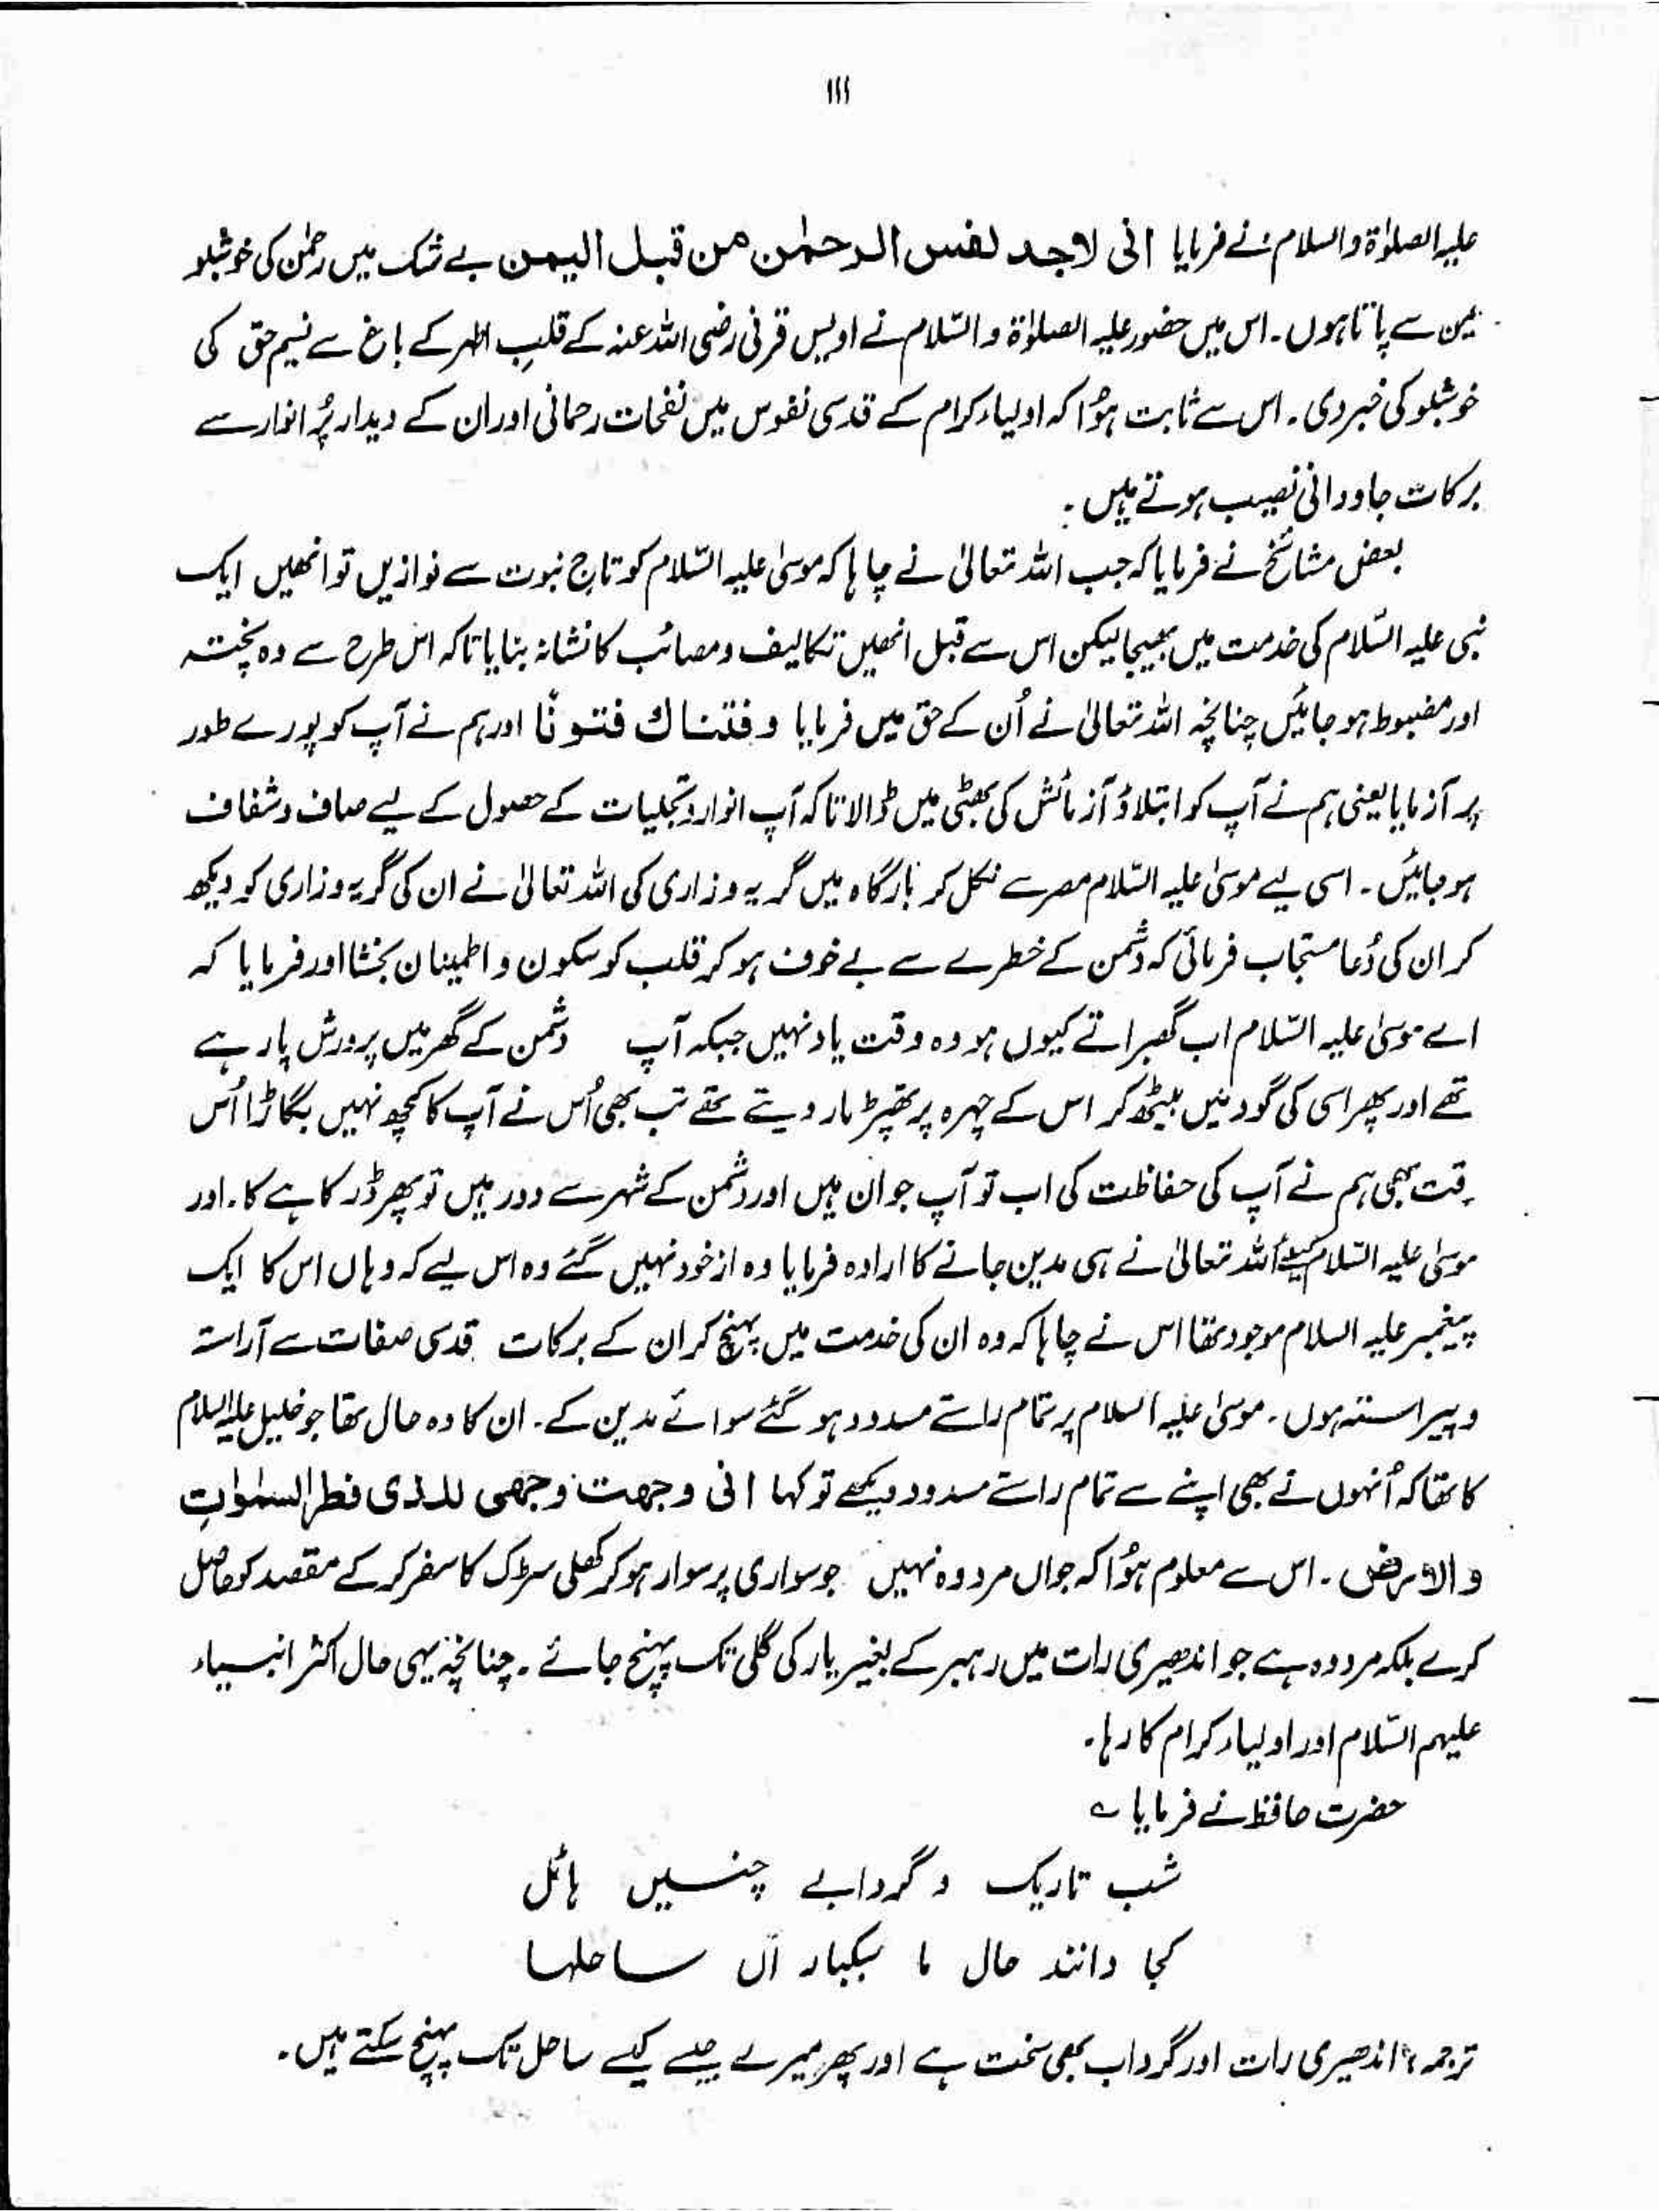 ۱۱۱
علیہ الصلوٰۃ والسلام نے فرمایا انی لاجد نفس الرحمٰن من قبل الیمن بے شک میں رحمٰن کی خوشبو
یمن سے پاتا ہوں۔ اس میں حضور علیہ الصلوٰۃ والسّلام نے اویس قرنی رضی اللہ عنہ کے قلبِ اطہر کے باغ سے نسیم حق کی
خوشبو کی خبر دی۔ اس سے ثابت ہوُا کہ اولیاء کرام کے قدسی نفوس میں نفحات رحمانی اور ان کے دیدار پُر انوار سے
برکات جاودانی نصیب ہوتے ہیں۔
بعض مشائخ نے فرمایا کہ جب اللہ تعالیٰ نے چاہا کہ موسیٰ علیہ السّلام کو تاجِ نبوت سے نوازیں تو انھیں ایک
نبی علیہ السّلام کی خدمت میں بھیجا لیکن اس سے قبل انھیں تکالیف و مصائب کا نشانہ بنایا تاکہ اس طرح سے وہ پختہ
اور مضبوط ہو جائیں چنانچہ اللہ تعالیٰ نے اُن کے حق میں فرمایا وفتناك فتونًا اور ہم نے آپ کو پورے طور
پر آزمایا یعنی ہم نے آپ کو ابتلاؤ آزمائش کی بھٹی میں ڈالا تاکہ آپ انوار و تجلیات کے حصول کے لیے صاف و شفاف
ہو جائیں۔ اسی لیے موسیٰ علیہ السّلام مصر سے نکل کر بارگاہ میں گریہ و زاری کی اللہ تعالیٰ نے ان کی گریہ و زاری کو دیکھ
کر ان کی دُعا مستجاب فرمائی کہ دُشمن کے خطرے سے بے خوف ہو کر قلب کو سکون و اطمینان بخشا اور فرمایا کہ
اے موسیٰ علیہ السّلام اب گھبراتے کیوں ہو وہ وقت یاد نہیں جبکہ آپ دشمن کے گھر میں پرورش پا رہے
تھے اور پھر اسی کی گود میں بیٹھ کر اس کے چہرہ پر تھپڑ مار دیتے تھے تب بھی اُس نے آپ کا کچھ نہیں بگاڑا اُس
وقت بھی ہم نے آپ کی حفاظت کی اب تو آپ جوان ہیں اور دشمن کے شہر سے دور ہیں تو پھر ڈر کاہے کا۔ اور
موسیٰ علیہ السّلام کیلئے اللہ تعالیٰ نے ہی مدین جانے کا ارادہ فرمایا وہ ازخود نہیں گئے وہ اس لیے کہ وہاں اس کا ایک
پیغمبر علیہ السلام موجود تھا اس نے چاہا کہ وہ ان کی خدمت میں پہنچ کر ان کے برکات قدسی صفات سے آراستہ
و پیراستہ ہوں۔ موسیٰ علیہ السلام پر تمام راستے مسدود ہو گئے سوائے مدین کے۔ ان کا وہ حال تھا جو خلیل علیہ السلام
کا تھا کہ اُنہوں نے بھی اپنے سے تمام راستے مسدود دیکھے تو کہا انی وجھت وجھی للذی فطر السمٰوٰتِ
والارض۔ اس سے معلوم ہوُا کہ جواں مرد وہ نہیں جو سواری پر سوار ہو کر کھلی سڑک کا سفر کر کے مقصد کو حاصل
کرے بلکہ مرد وہ ہے جو اندھیری رات میں رہبر کے بغیر یار کی گلی تک پہنچ جائے۔ چنانچہ یہی حال اکثر انبیاء
علیہم السّلام اور اولیاء کرام کا رہا۔
حضرت حافظ نے فرمایا ؎
شب تاریک و گردابے چنیں ہائل
کجا دانند حال ما سبکبار آں ساحلہا
ترجمہ: اندھیری رات اور گرداب بھی سخت ہے اور پھر میرے جیسے کیسے ساحل تک پہنچ سکتے ہیں۔